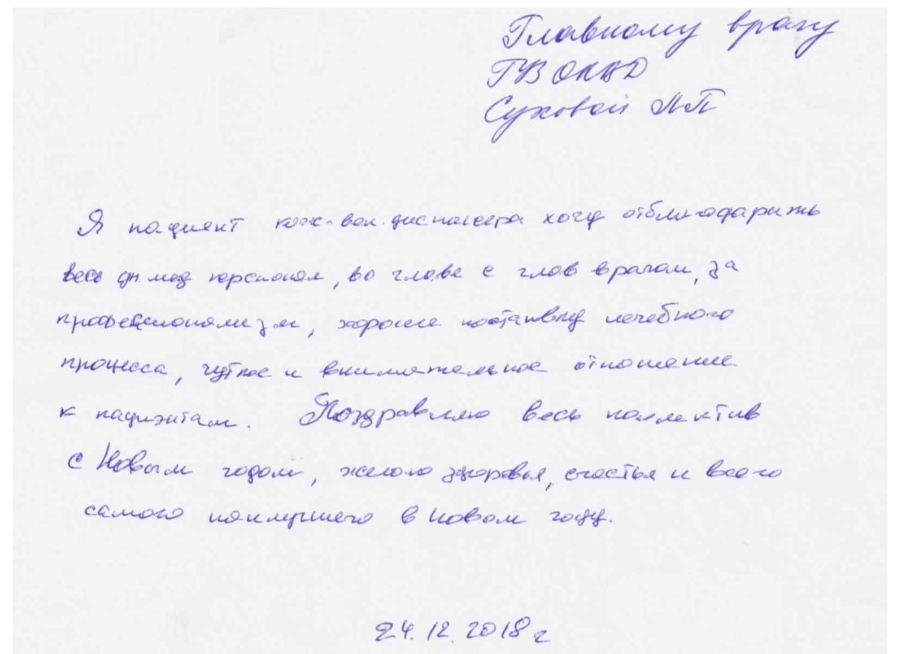 Главному врачу
ГУЗ ОКВД
Суховой Л П
Я пациент кож-вен.диспансера хочу отблагодарить
весь мед персонал, во главе с глав врачом, за
профессионализм, хорошую поставку лечебного
процесса, чуткое и внимательное отношение
к пациентам. Поздравляю весь коллектив
с Новым годом, желаю здоровья, счастья и всего
самого наилучшего в новом году.
24.12.2018 г